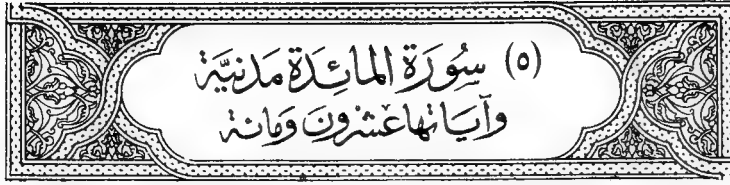 (٥) سُورَة المائِدَة مَدَنيَّة
وآيَاتها عشرُونَ وَمائة